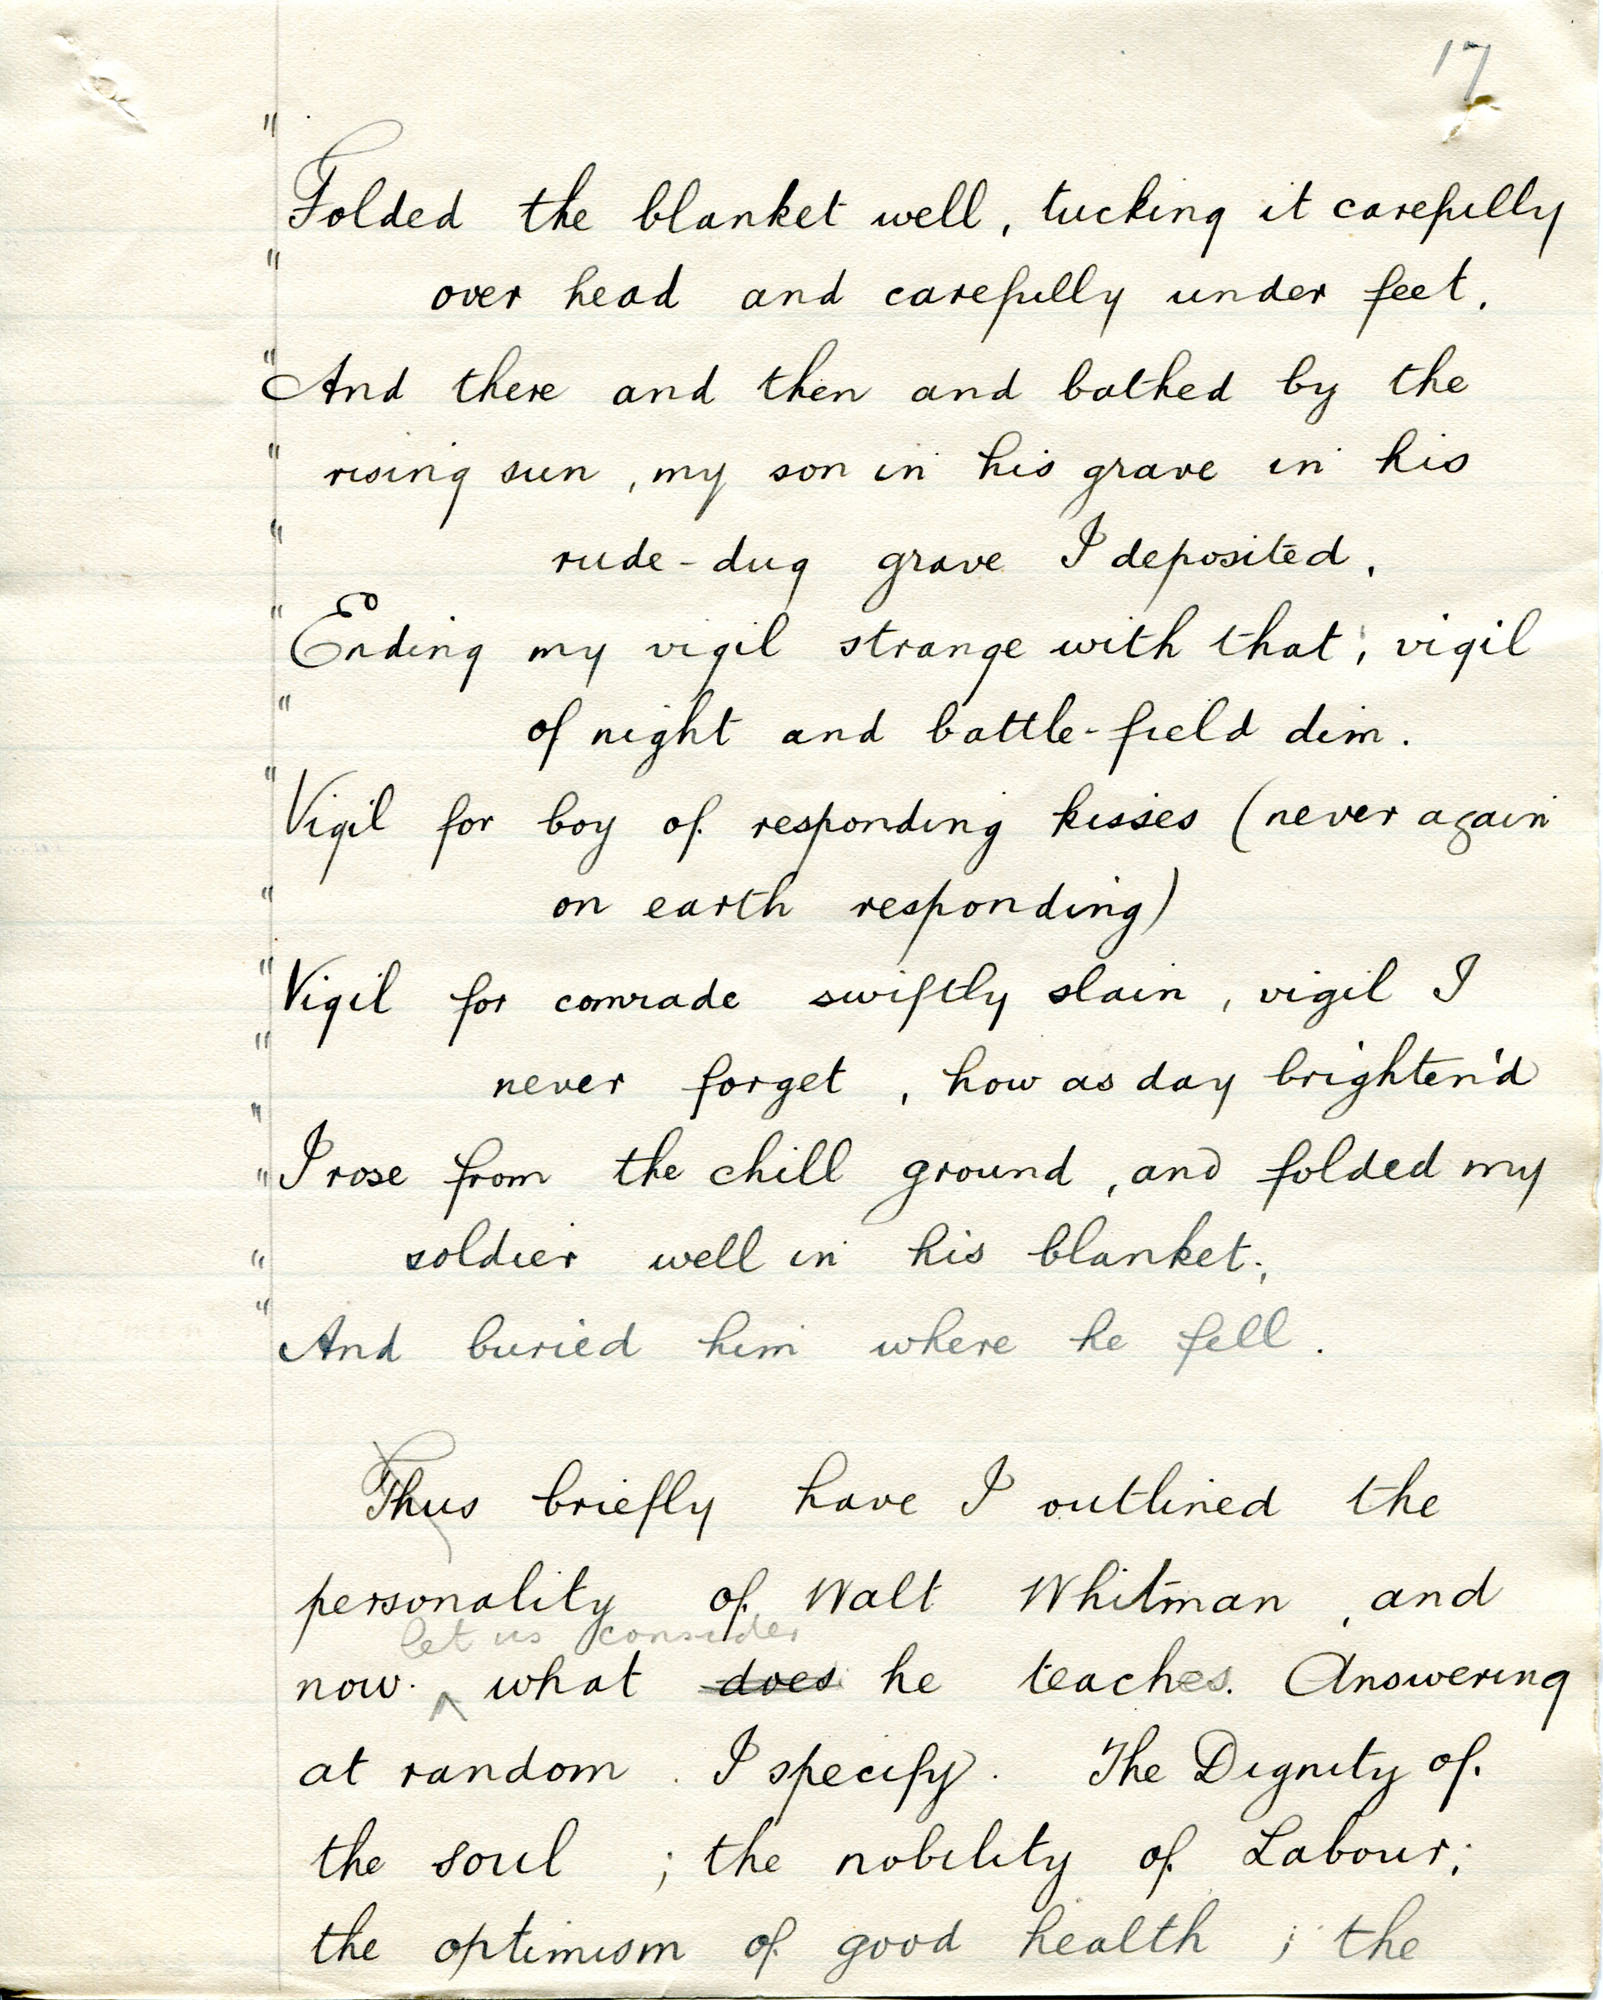 17
"
Folded the blanket well, tucking it carefully
" over head and carefully under feet,
" And there and then and bathed by the
" rising sun, my son in his grave in his
" rude-dug grave I deposited,
" Ending my vigil strange with that; vigil
" of night and battle-field dim.
" Vigil for boy of responding kisses (never again
" on earth responding)
" Vigil for comrade swiftly slain, vigil I
" never forget, how as day brighten'd
" I rose from the chill ground, and folded my
" soldier well in his blanket;
" And buried him where he fell.
Thus briefly have I outlined the
personality of Walt Whitman, and
let us consider
now. ^ what does he teaches. Answering
at random. I specify. The Dignity of
the soul; the nobility of Labour;
the optimism of good health; the